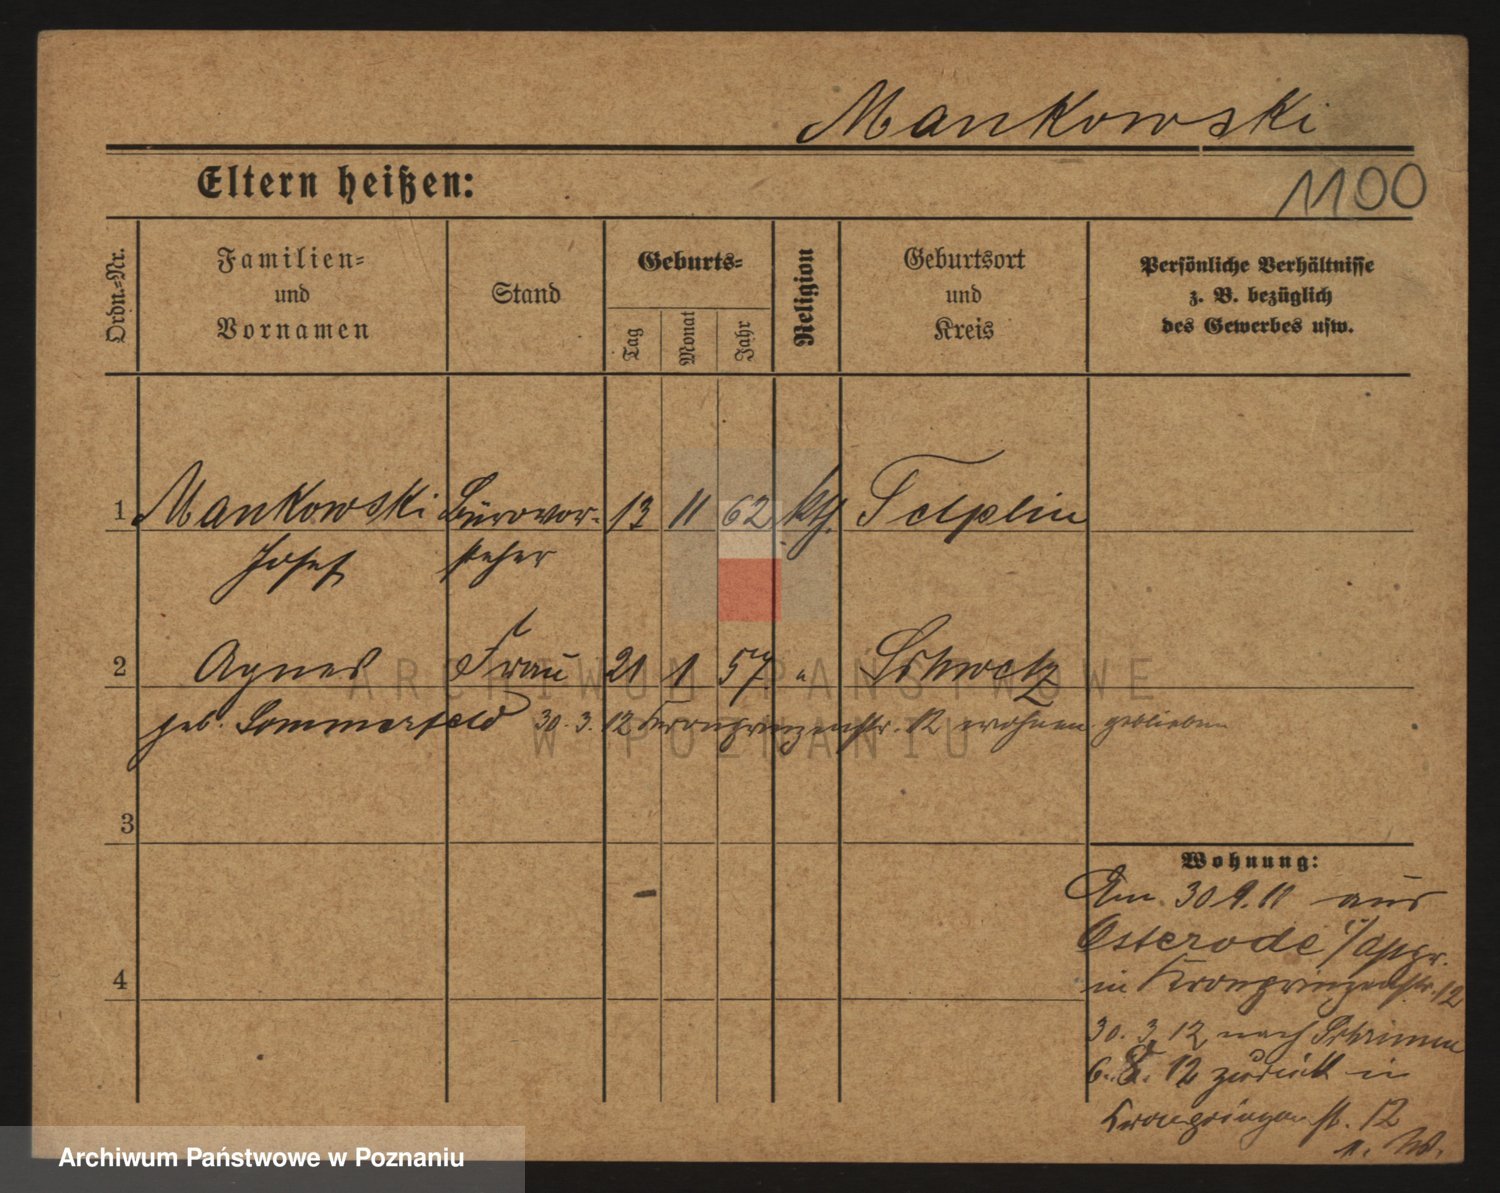 Mankowski
Eltern heißen:
1100
Ordn.-Nr.
Familien-
und
Vornamen
Stand
Geburts-
Tag
Monat
Jahr
Religion
Geburtsort
und
Kreis
Persönliche Verhältnisse
z. B. bezüglich
des Gewerbes usw.
1 Mankowski Bürovor- 13 11 62 kth. Pelplin
Josef steher
2 Agnes Frau 21 1 57 " Schwetz
geb. Sommerfeld 30. 3. 12 Kronprinzenstr. 12 wohnen geblieben
3
Wohnung:
Am 30 9. 11 aus
Osterode i/Ostpr.
4
in Kronprinzenstr. 12
30. 3. 12 nach Schrimm
6. 8. 12 zurück in
Kronprinzenst. 12
ARCHIWUM PAŃSTWOWE
W POZNANIU
Archiwum Państwowe w Poznaniu